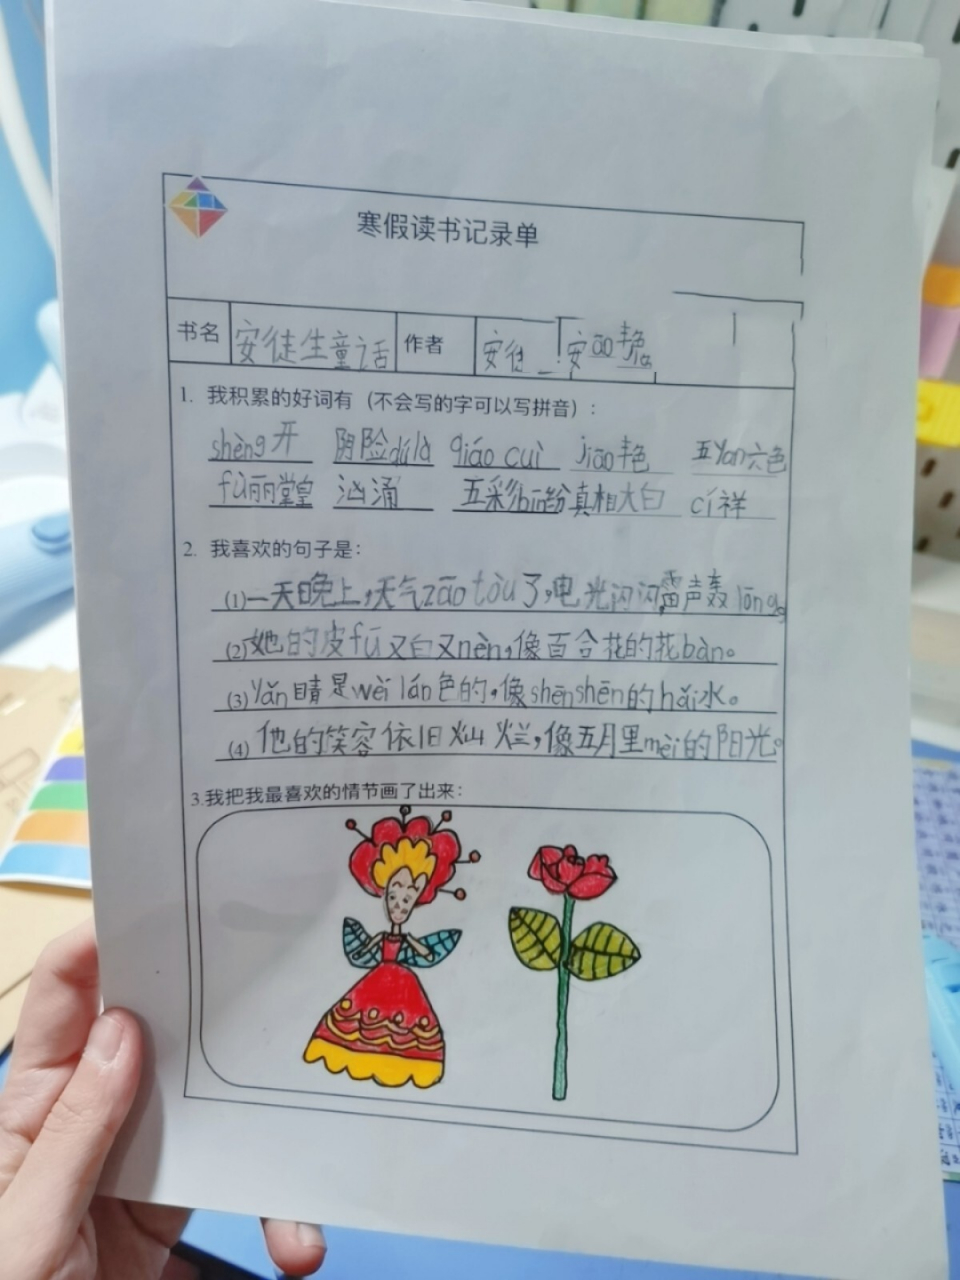 寒假读书记录单
书名 安徒生童话 作者 安徒 安āo艳
1. 我积累的好词有（不会写的字可以写拼音）:
shèng开 阴险dúlà qiáo cuì jiāo艳 五yán六色
fù丽堂皇 汹涌 五彩bīn纷 真相大白 cí祥
2. 我喜欢的句子是:
(1)一天晚上,天气zāo tòu了,电光闪闪,雷声轰lōng。
(2)她的皮fū又白又nèn,像百合花的花bàn。
(3)yǎn睛是wèi lán色的,像shēnshēn的hǎi水。
(4)他的笑容依旧灿烂,像五月里mèi的阳光。
3.我把我最喜欢的情节画了出来: